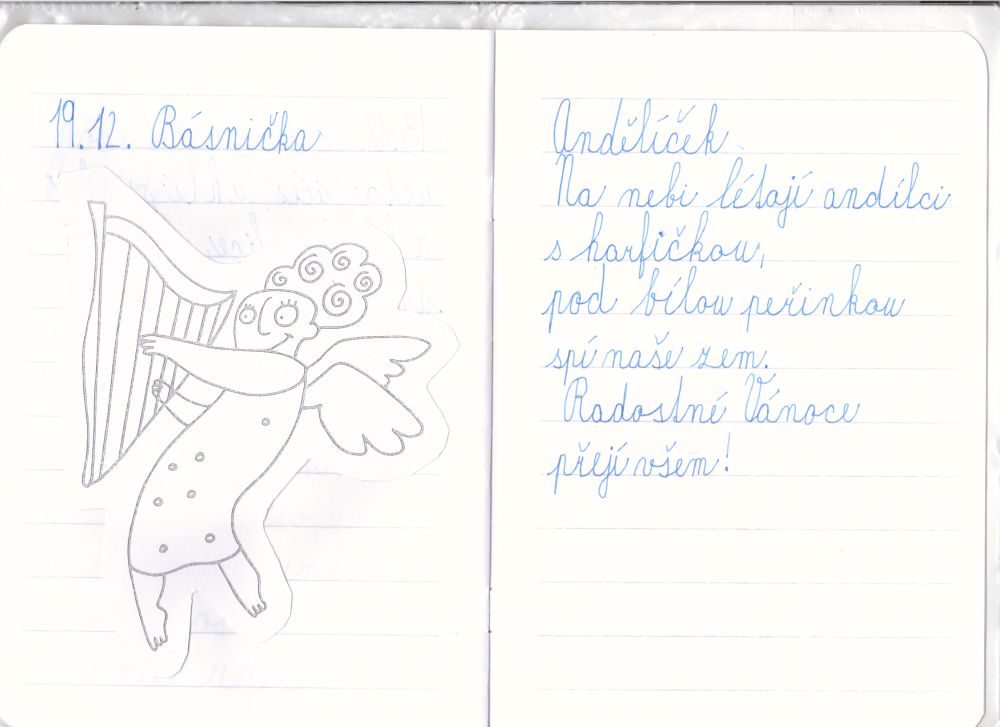 19.12. Básnička
Andělíček
Na nebi létají andílci
s harfičkou,
pod bílou peřinkou
spí naše zem.
Radostné Vánoce
přejí všem!